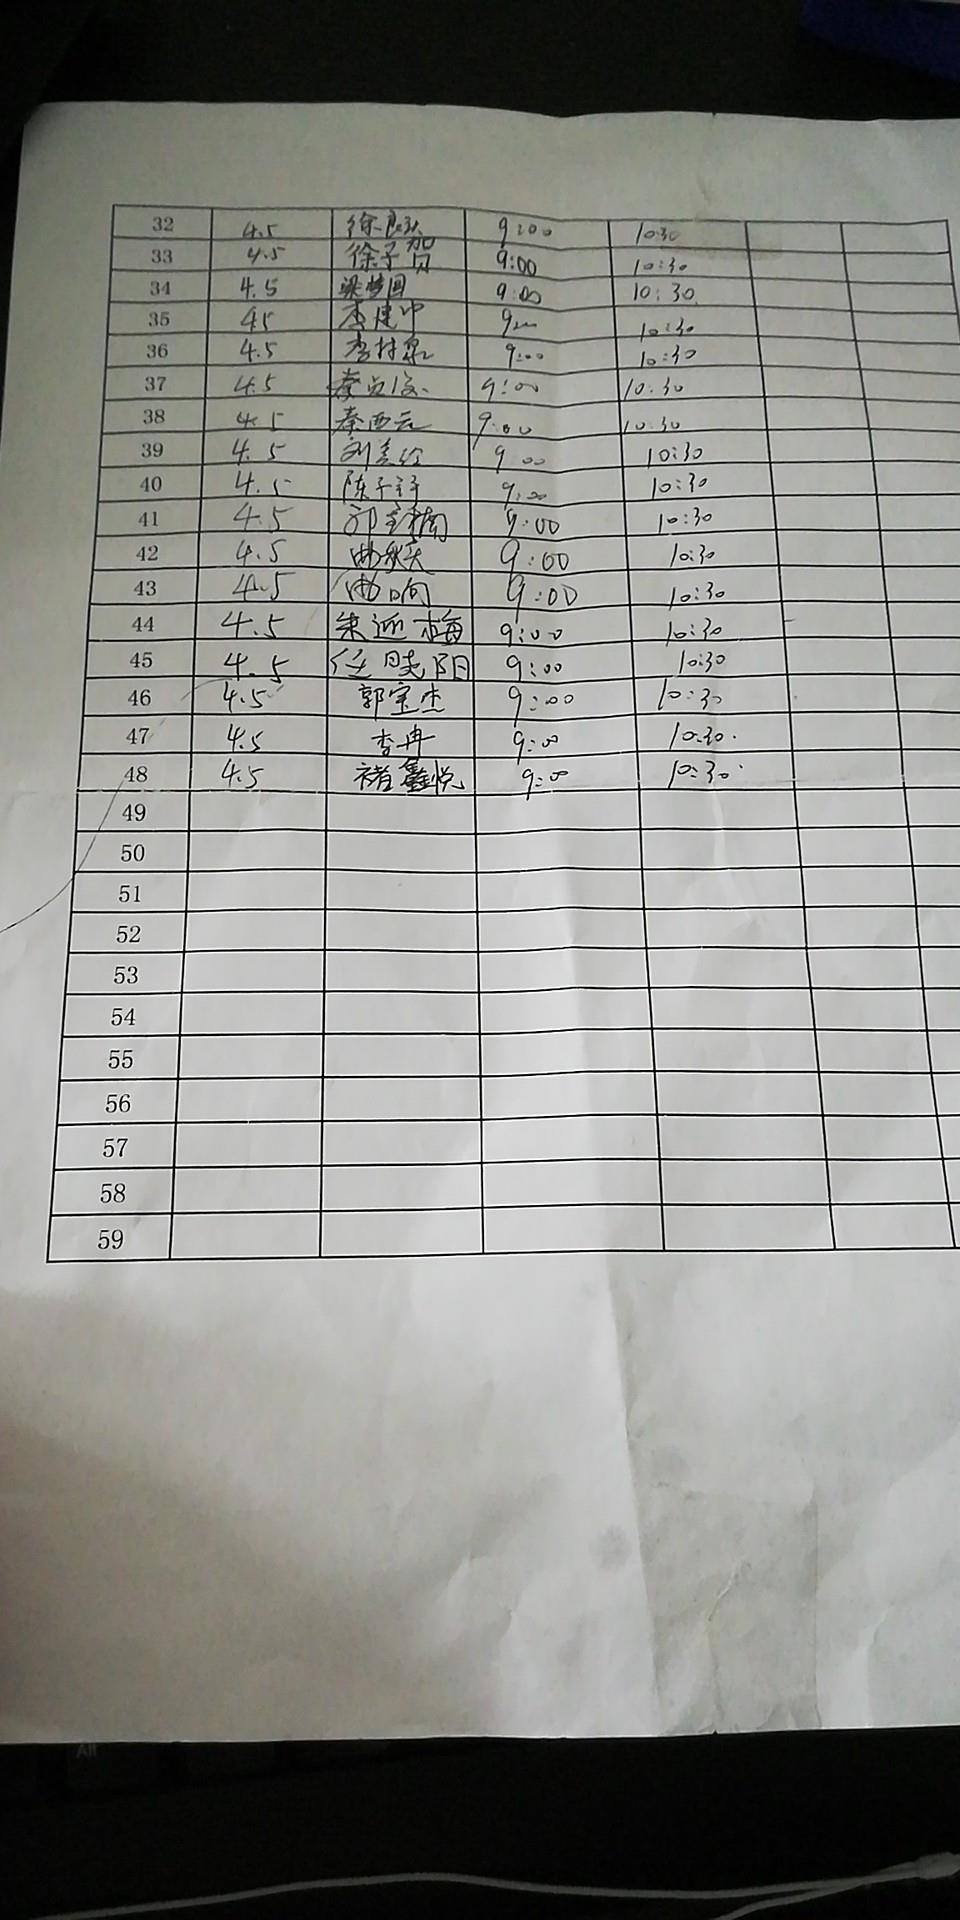 32 4.5 徐良跃 9:00 10:30
33 4.5 徐子贺 9:00 10:30
34 4.5 梁梦园 9:00 10:30
35 4.5 李建中 9:00 10:30
36 4.5 李林泉 9:00 10:30
37 4.5 秦 9:00 10:30
38 4.5 秦西云 9:00 10:30
39 4.5 刘 9:00 10:30
40 4.5 陈子 9:00 10:30
41 4.5 楠 9:00 10:30
42 4.5 曲秋天 9:00 10:30
43 4.5 曲响 9:00 10:30
44 4.5 朱迎梅 9:00 10:30
45 4.5 任晓阳 9:00 10:30
46 4.5 郭宝杰 9:00 10:30
47 4.5 李冉 9:00 10:30.
48 4.5 褚鑫悦 9:00 10:30
49
50
51
52
53
54
55
56
57
58
59
Alt